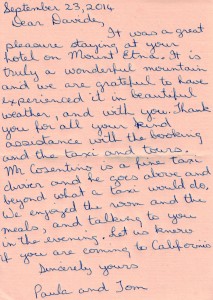 September 23, 2014
Dear Davide,
It was a great
pleasure staying at your
hotel on Mount Etna. It is
truly a wonderful mountain
and we are grateful to have
experienced it in beautiful
weather, and with you. Thank
you for all your kind
assistance with the booking
and the taxi and tours.
Mr Cosentino is a fine taxi
driver and he goes above and
beyond what a taxi would do.
We enjoyed the room and the
meals, and talking to you
in the evening. Let us know
if you are coming to California
Sincerely yours
Paula and Tom